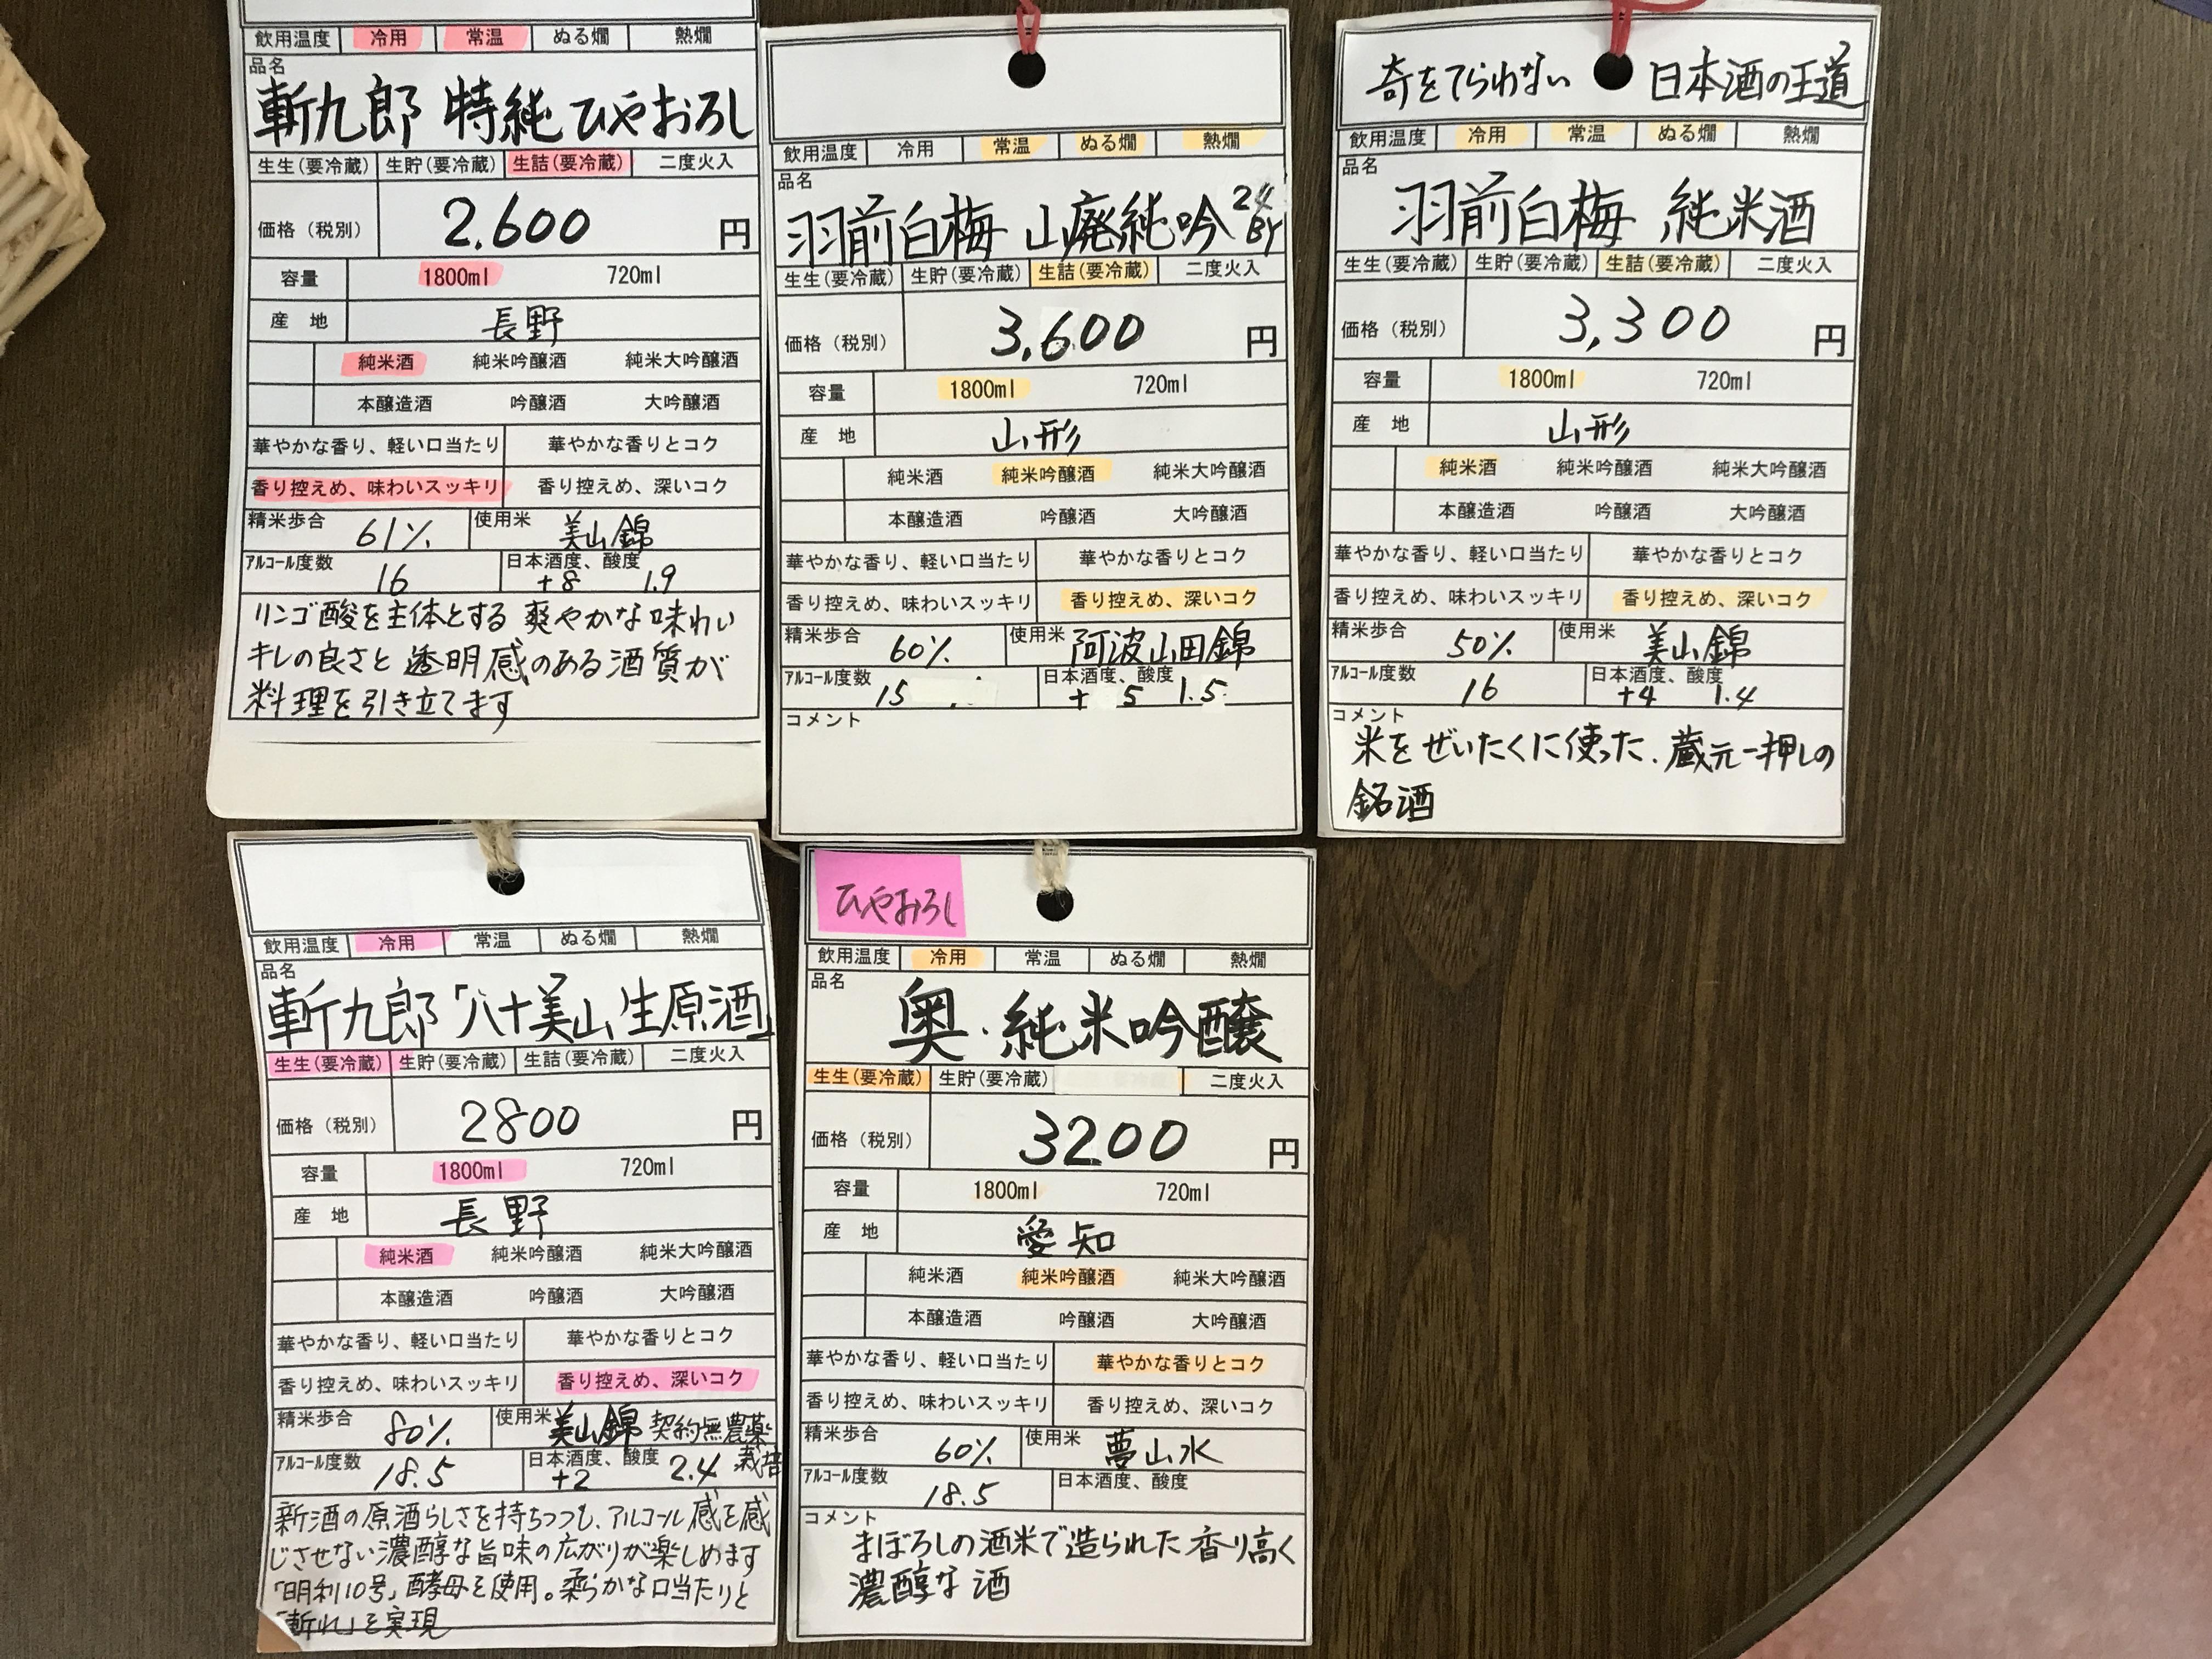 飲用温度 冷用 常温 ぬる燗 熱燗
品名
斬九郎 特純 ひやおろし
生生(要冷蔵) 生貯(要冷蔵) 生詰(要冷蔵) 二度火入
価格（税別） 2,600 円
容量 1800ml 720ml
産 地 長野
純米酒 純米吟醸酒 純米大吟醸酒
本醸造酒 吟醸酒 大吟醸酒
華やかな香り、軽い口当たり 華やかな香りとコク
香り控えめ、味わいスッキリ 香り控えめ、深いコク
精米歩合 61% 使用米 美山錦
アルコール度数 16 日本酒度、酸度 +8 1.9
リンゴ酸を主体とする 爽やかな味わい
キレの良さと 透明感のある酒質が
料理を引き立てます
飲用温度 冷用 常温 ぬる燗 熱燗
品名
羽前白梅 山廃純吟 24BY
生生(要冷蔵) 生貯(要冷蔵) 生詰(要冷蔵) 二度火入
価格（税別） 3,600 円
容量 1800ml 720ml
産 地 山形
純米酒 純米吟醸酒 純米大吟醸酒
本醸造酒 吟醸酒 大吟醸酒
華やかな香り、軽い口当たり 華やかな香りとコク
香り控えめ、味わいスッキリ 香り控えめ、深いコク
精米歩合 60% 使用米 阿波山田錦
アルコール度数 15 日本酒度、酸度 + 5 1.5
コメント
奇をてらわない 日本酒の王道
飲用温度 冷用 常温 ぬる燗 熱燗
品名
羽前白梅 純米酒
生生(要冷蔵) 生貯(要冷蔵) 生詰(要冷蔵) 二度火入
価格（税別） 3,300 円
容量 1800ml 720ml
産 地 山形
純米酒 純米吟醸酒 純米大吟醸酒
本醸造酒 吟醸酒 大吟醸酒
華やかな香り、軽い口当たり 華やかな香りとコク
香り控えめ、味わいスッキリ 香り控えめ、深いコク
精米歩合 50% 使用米 美山錦
アルコール度数 16 日本酒度、酸度 +4 1.4
コメント
米をぜいたくに使った、蔵元一押しの
銘酒
飲用温度 冷用 常温 ぬる燗 熱燗
品名
斬九郎「八十美山」生原酒
生生(要冷蔵) 生貯(要冷蔵) 生詰(要冷蔵) 二度火入
価格（税別） 2800 円
容量 1800ml 720ml
産 地 長野
純米酒 純米吟醸酒 純米大吟醸酒
本醸造酒 吟醸酒 大吟醸酒
華やかな香り、軽い口当たり 華やかな香りとコク
香り控えめ、味わいスッキリ 香り控えめ、深いコク
精米歩合 80% 使用米 美山錦 契約無農薬栽培
アルコール度数 18.5 日本酒度、酸度 +2 2.4
新酒の原酒らしさを持ちつつも、アルコール感を感
じさせない濃醇な旨味の広がりが楽しめます
「明利10号」酵母を使用。柔らかな口当たりと
「斬れ」を実現
ひやおろし
飲用温度 冷用 常温 ぬる燗 熱燗
品名
奥・純米吟醸
生生(要冷蔵) 生貯(要冷蔵) 二度火入
価格（税別） 3200 円
容量 1800ml 720ml
産 地 愛知
純米酒 純米吟醸酒 純米大吟醸酒
本醸造酒 吟醸酒 大吟醸酒
華やかな香り、軽い口当たり 華やかな香りとコク
香り控えめ、味わいスッキリ 香り控えめ、深いコク
精米歩合 60% 使用米 夢山水
アルコール度数 18.5 日本酒度、酸度
コメント
まぼろしの酒米で造られた香り高く
濃醇な酒